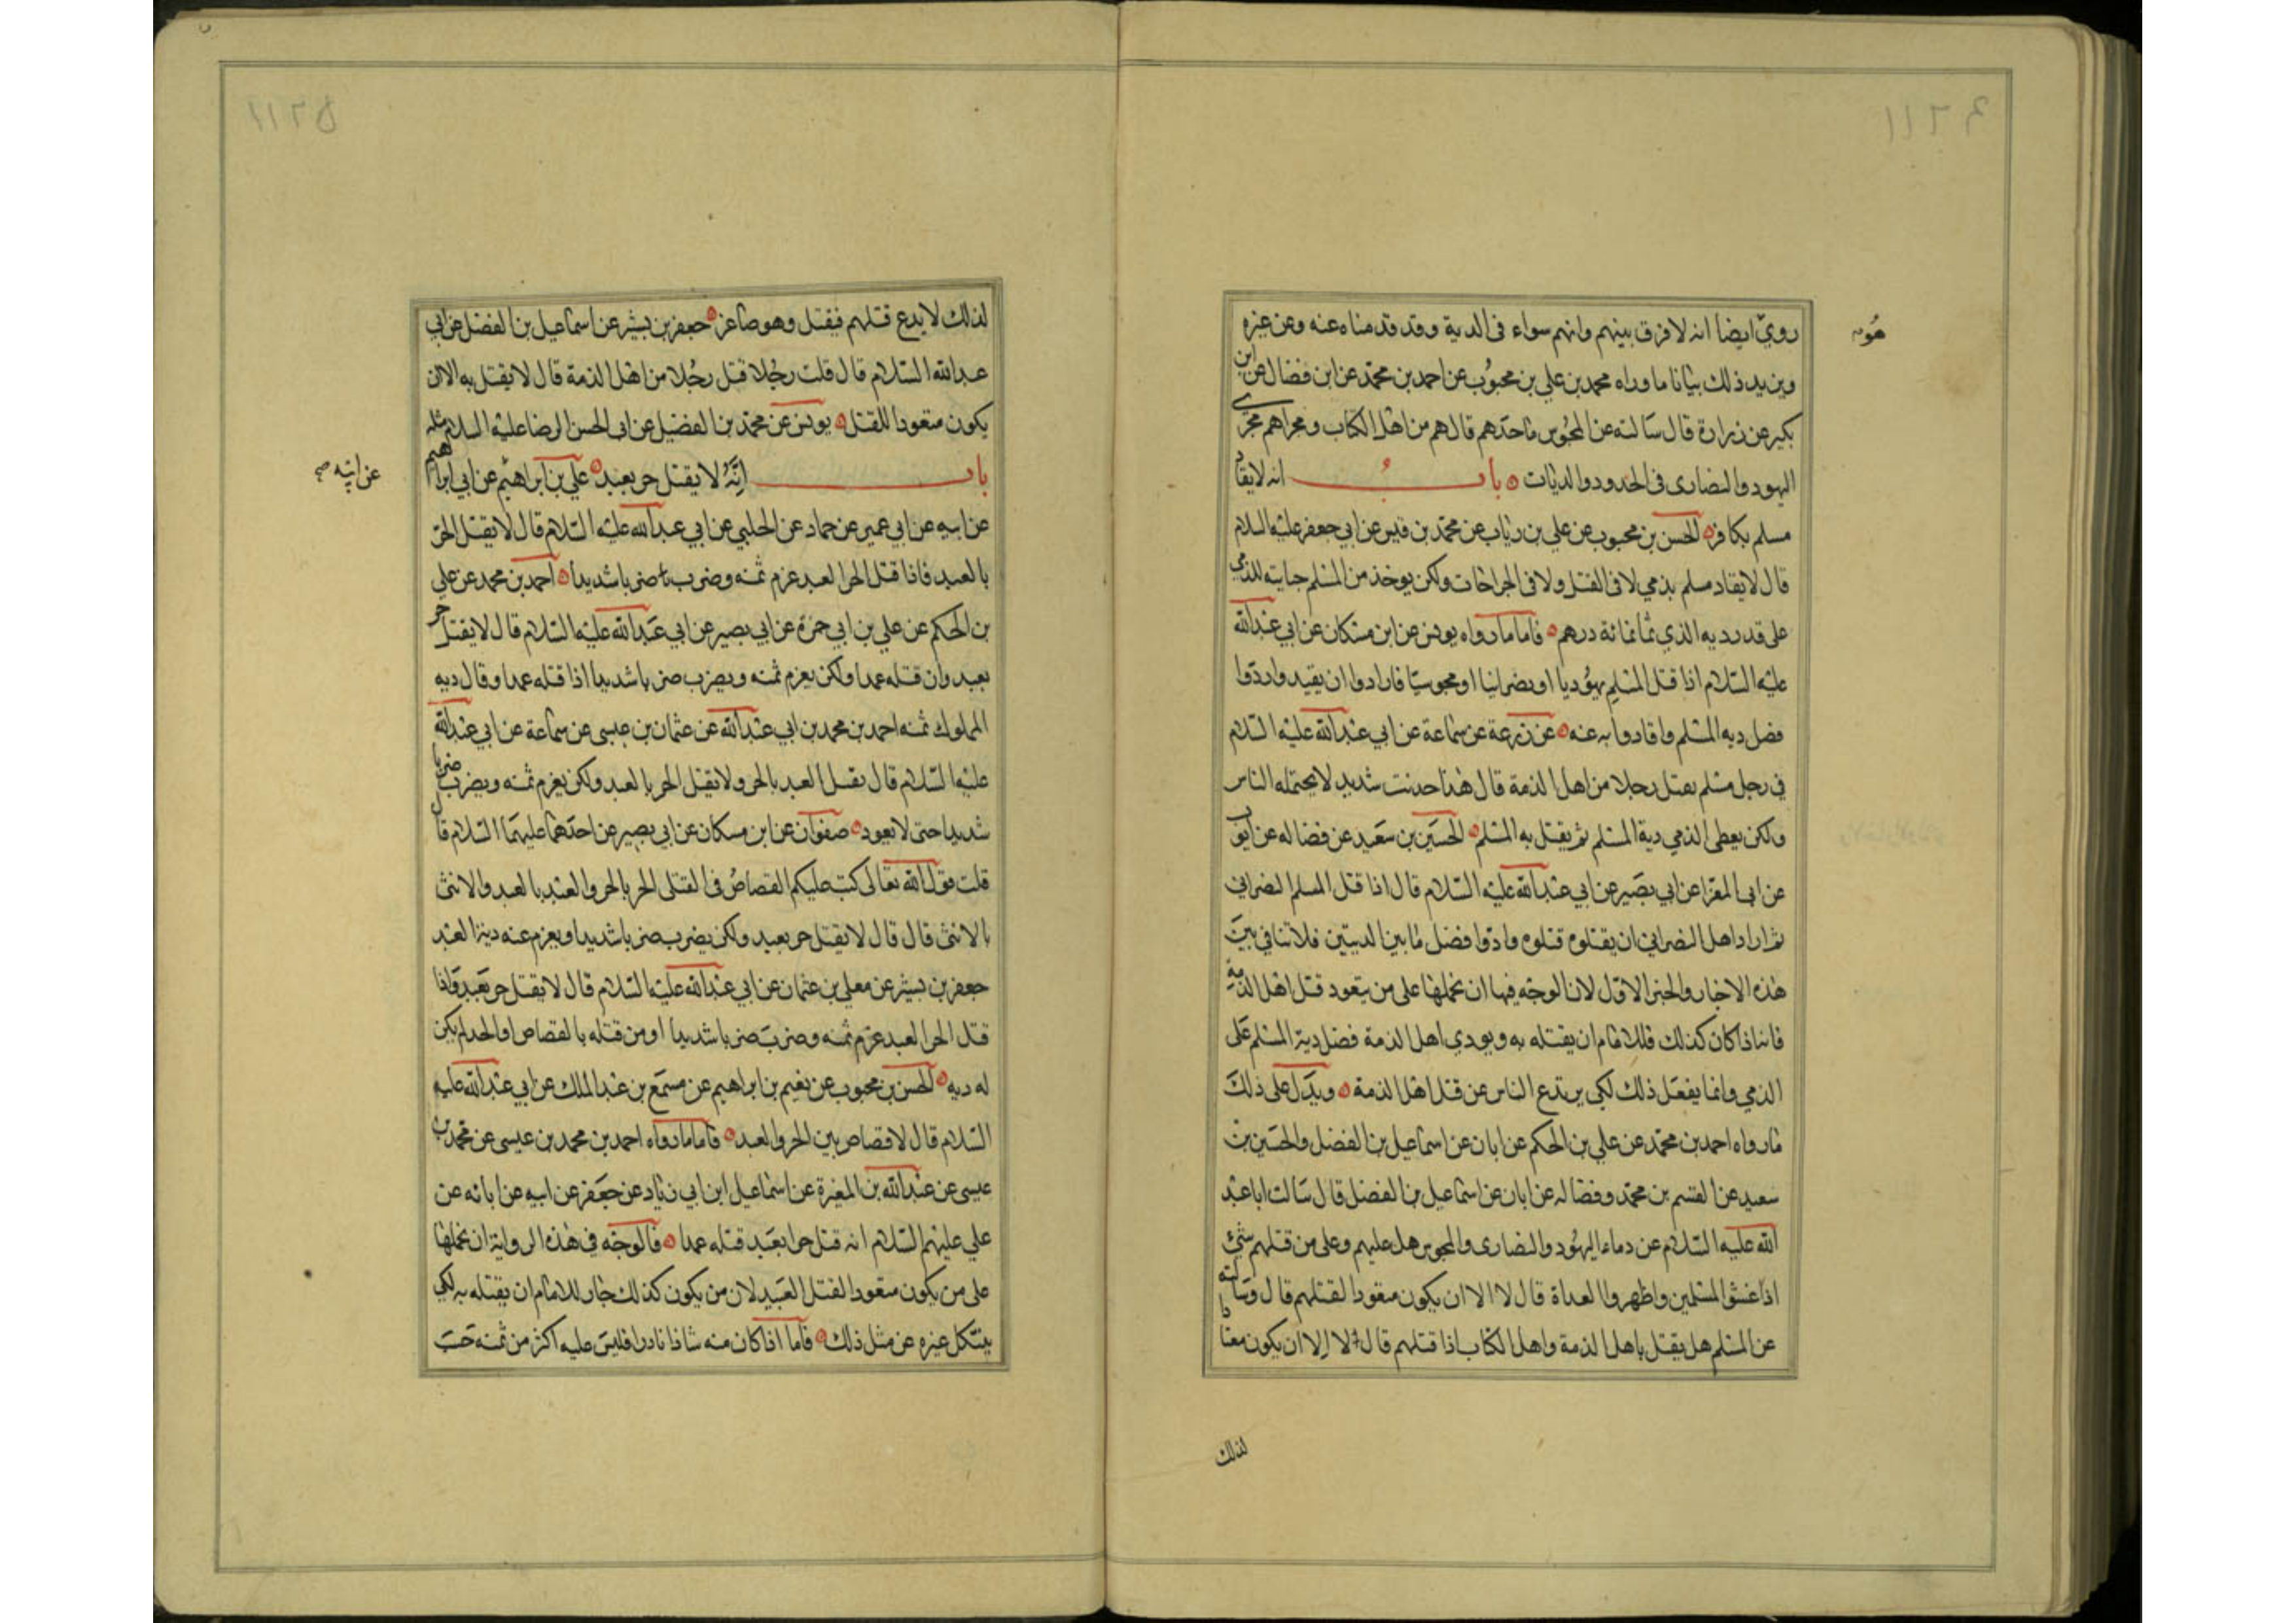 هو
روي ايضا انه لا فرق بينهم وانهم سواء فى الدية وقد قدمناه عنه وعن غيره
ويزيد ذلك بيانا ما رواه محمد بن علي بن محبوب عن احمد بن محمد عن ابن فضال عن ابن
بكير عن زرارة قال سالته عن المجوس ما حدهم قال هم من اهل الكتاب ومجراهم مجرى
اليهود والنصارى فى الحدود والديات باب انه لا يقاد
مسلم بكافر الحسن بن محبوب عن علي بن رياب عن محمد بن قيس عن ابي جعفر عليه السلام
قال لا يقاد مسلم بذمي لا فى القتل ولا فى الجراحات ولكن يوخذ من المسلم جنايته للذمي
على قدر ديه الذي ثمانمائة درهم فاما ما رواه يونس عن ابن مسكان عن ابي عبدالله
عليه السلام اذا قتل المسلم يهوديا او نصرانيا او مجوسيا فارادوا ان يقيدوا ردوا
فضل ديه المسلم واقادوا به عنه عن زرعة عن سماعة عن ابي عبدالله عليه السلام
في رجل مسلم يقتل رجلا من اهل الذمة قال هذا حديث شديد لا يحتمله الناس
ولكن يعطى الذمي دية المسلم ثم يقتل به المسلم الحسين بن سعيد عن فضاله عن ايوب
عن ابى المغرا عن ابي بصير عن ابي عبدالله عليه السلام قال اذا قتل المسلم النصراني
ثم اراد اهل النصراني ان يقتلوه قتلوه وادوا فضل ما بين الديتين فلا تنافي بين
هذه الاخبار والخبر الاول لان الوجه فيها ان نحملها على من يتعود قتل اهل الذمة
فانه اذا كان كذلك فللامام ان يقتله به ويودي اهل الذمة فضل دية المسلم على
الذمي وانما يفعل ذلك لكي يرتدع الناس عن قتل اهل الذمة ويدل على ذلك
ما رواه احمد بن محمد عن علي بن الحكم عن ابان عن اسماعيل بن الفضل والحسين بن
سعيد عن القسم بن محمد وفضاله عن ابان عن اسماعيل بن الفضل قال سالت ابا عبد
الله عليه السلام عن دماء اليهود والنصارى والمجوس هل عليهم وعلى من قتلهم شئ
اذا غشوا المسلمين واظهروا العداة قال لا الا ان يكون متعودا لقتلهم قال وسالته
عن المسلم هل يقتل باهل الذمة واهل الكتاب اذا قتلهم قال لا الا ان يكون معتادا
لذلك
لذلك لا يدع قتلهم فيقتل وهو صاغر جعفر بن بشير عن اسماعيل بن الفضل عن ابي
عبدالله السلام قال قلت رجلا قتل رجلا من اهل الذمة قال لا يقتل به الا ان
يكون متعودا للقتل يونس عن محمد بن الفضيل عن ابى الحسن الرضا عليه السلام مثله
باب انه لا يقتل حر بعبد علي بن ابراهيم عن ابي ابراهيم
عن ابيه
عن ابيه عن ابي عمير عن حماد عن الحلبي عن ابي عبدالله عليه السلام قال لا يقتل الحر
بالعبد فاذا قتل الحر العبد غرم ثمنه وضرب ضربا شديدا احمد بن محمد عن علي
بن الحكم عن علي بن ابي حمزة عن ابي بصير عن ابي عبدالله عليه السلام قال لا يقتل حر
بعبد وان قتله عمدا ولكن يغرم ثمنه ويضرب ضربا شديدا اذا قتله عمدا وقال ديه
المملوك ثمنه احمد بن محمد بن ابي عبدالله عن عثمان بن عيسى عن سماعة عن ابي عبدالله
عليه السلام قال يقتل العبد بالحر ولا يقتل الحر بالعبد ولكن يغرم ثمنه ويضرب ضربا
شديدا حتى لا يعود صفوان عن ابن مسكان عن ابي بصير عن احدهما عليهما السلام قال
قلت قول الله تعالى كتب عليكم القصاص فى القتلى الحر بالحر والعبد بالعبد والانثى
بالانثى قال قال لا يقتل حر بعبد ولكن يضرب ضربا شديدا ويغرم عنه دية العبد
جعفر بن بشير عن معلى بن عثمان عن ابي عبدالله عليه السلام قال لا يقتل حر بعبد فاذا
قتل الحر العبد غرم ثمنه وضرب ضربا شديدا ومن قتله بالقصاص او الحد لم يكن
له ديه الحسن بن محبوب عن نعيم بن ابراهيم عن مسمع بن عبد الملك عن ابي عبدالله عليه
السلام قال لا قصاص بين الحر والعبد فاما ما رواه احمد بن محمد بن عيسى عن محمد بن
عيسى عن عبدالله بن المغيرة عن اسماعيل ابن ابي زياد عن جعفر عن ابيه عن ابائه عن
علي عليهم السلام انه قتل حرا بعبد قتله عمدا فالوجه في هذه الرواية ان نحملها
على من يكون متعودا لقتل العبيد لان من يكون كذلك جاز للامام ان يقتله به لكي
ينكل غيره عن مثل ذلك فاما اذا كان منه شاذا نادرا فليس عليه اكثر من ثمنه حسب